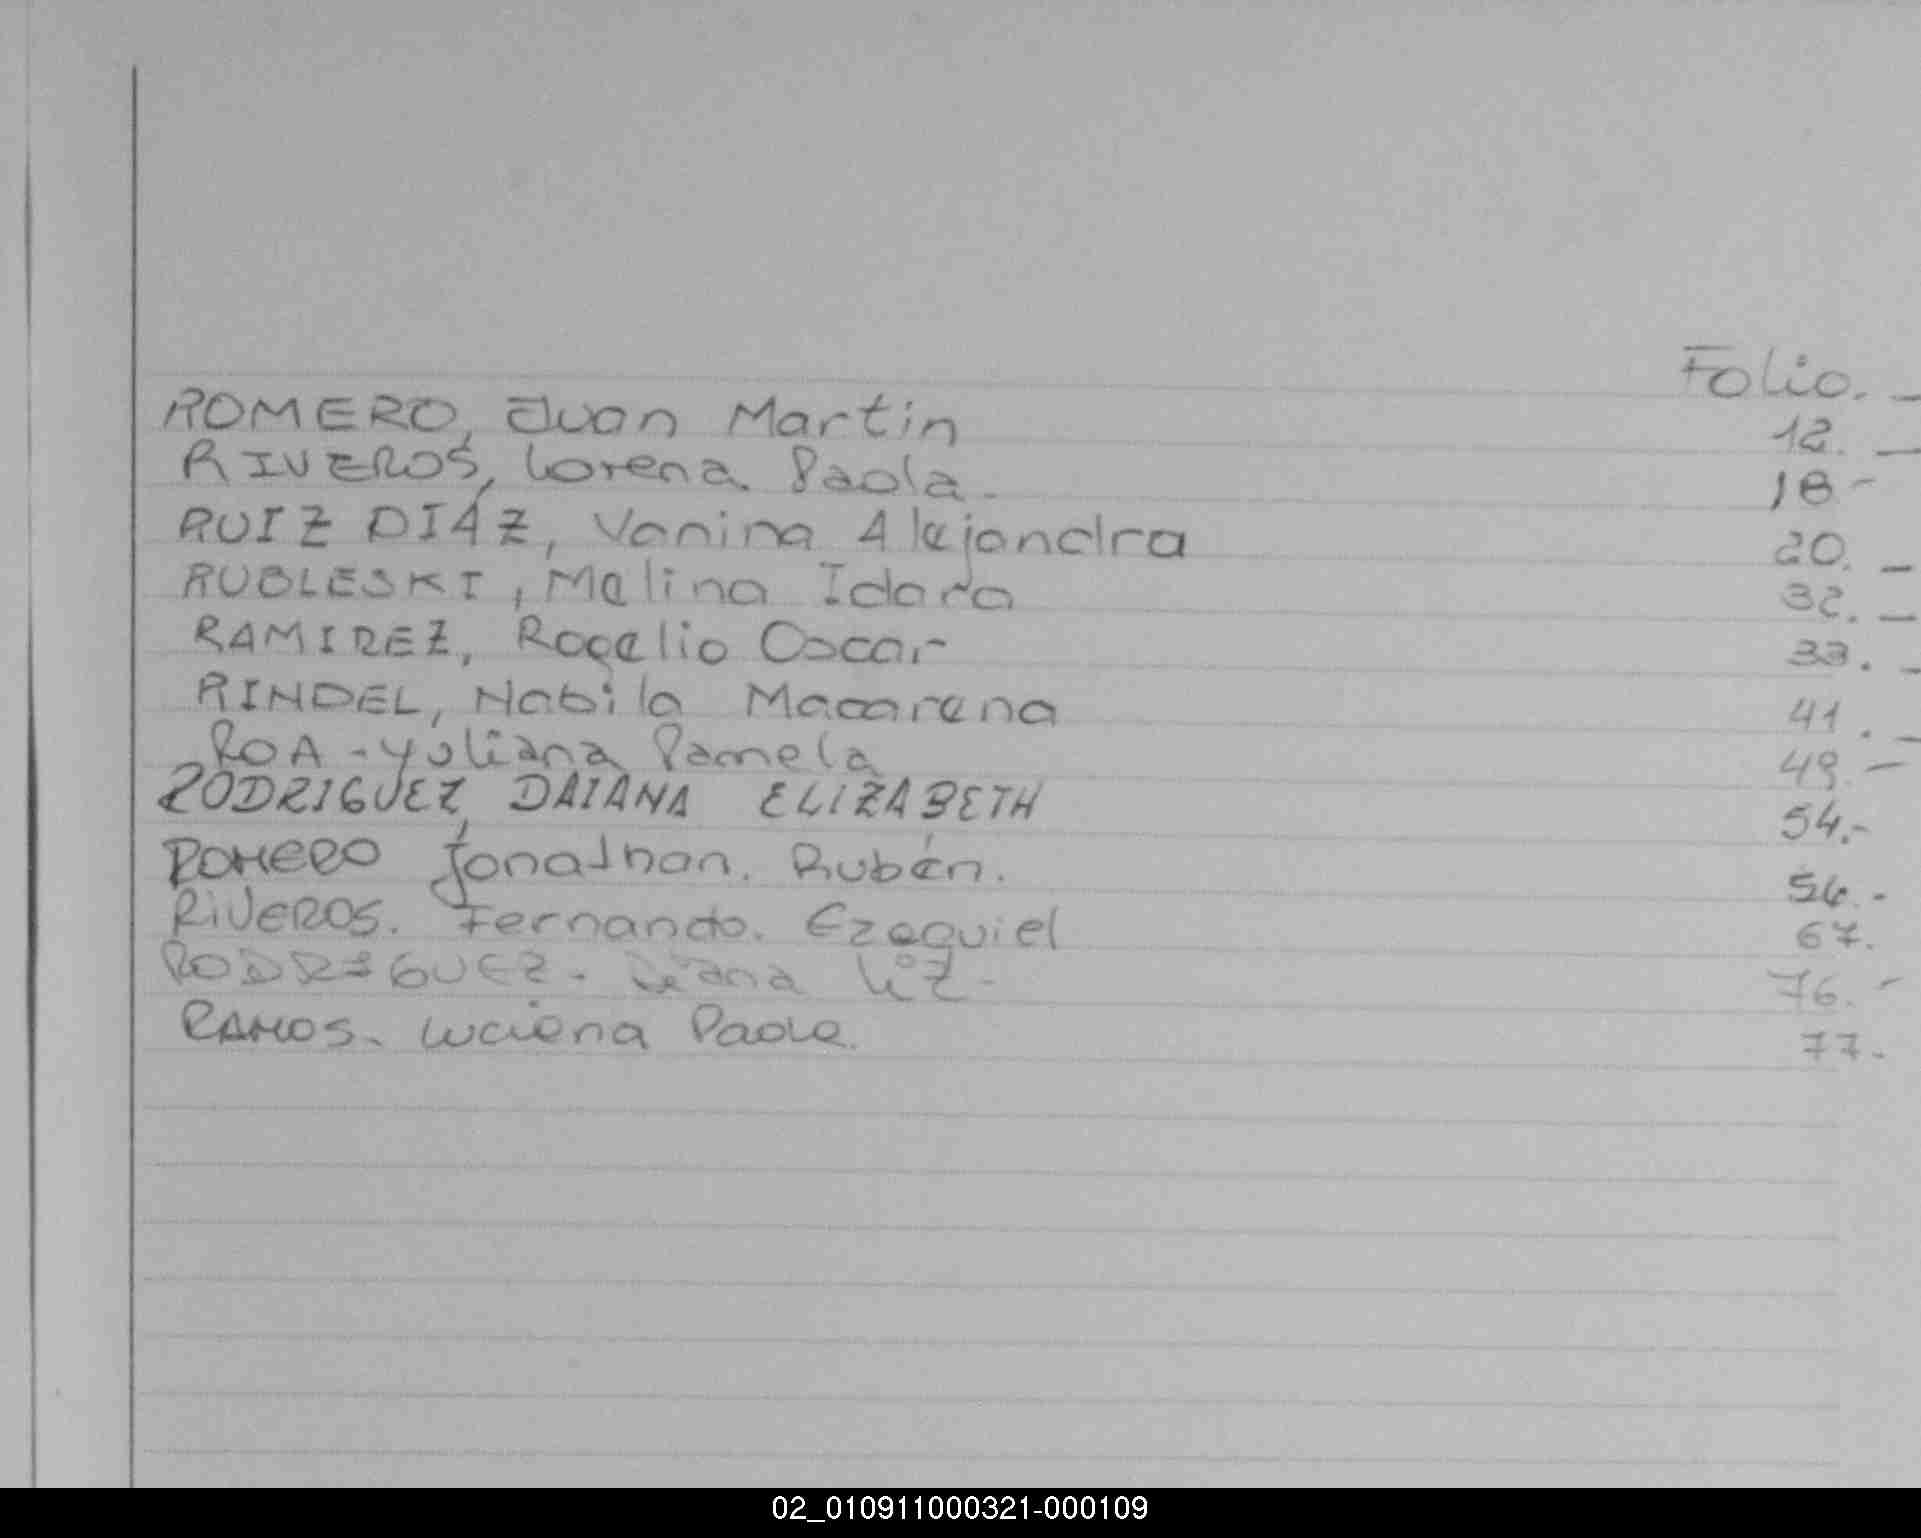 Folio. -
ROMERO, Juan Martin 12. -
RIVEROS, Lorena Paola - 18 -
RUIZ DIÁZ, Vanina Alejandra 20. -
RUBLESKI, Melina Idara 32. -
RAMIREZ, Rogelio Oscar 33. -
RINDEL, Nabila Macarena 41. -
ROA - Yuliana Pamela 49. -
RODRIGUEZ, DAIANA ELIZABETH 54.-
ROMERO Jonathan. Rubén. 56.-
RiVEROS. Fernando. Ezequiel 67.
RODRIGUEZ - 76. -
RAMOS - Luciana Paola. 77.-
02_010911000321-000109